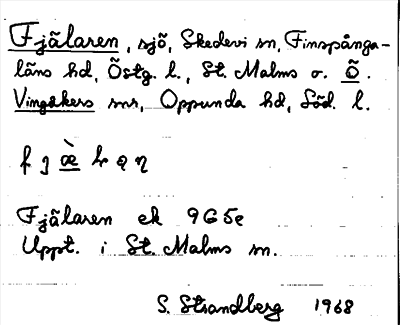 Fjälaren, sjö, Skedevi sn, Finspånga-
läns hd, Östg. l., St. Malms o. Ö.
Vingåkers snr, Oppunda hd, Söd. l.
Fjälaren ek 9G5e
Uppt. i St. Malms sn.
S. Strandberg 1968